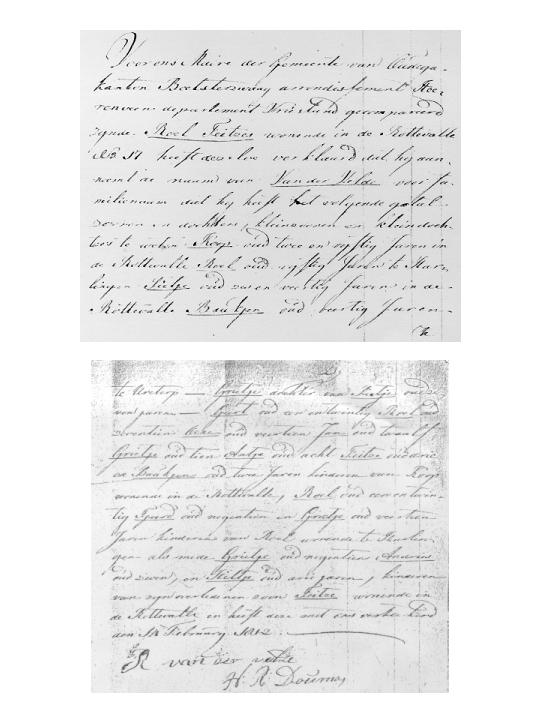 Voor ons Maire der Gemeente van Oudega
kanton Beetsterzwaag arrondissement Hee-
renveen departement Vriesland gecompareerd
zynde Roel Feitzes wonende in de Rottevalle
No 17 heeft dezelve verklaard dat hy aan-
neemt de naam van Van der Velde voor fa-
milienaam dat hy heeft het volgende getal
zoonen en dochters, kleinzoonen en kleindoch-
ters te weten Koop oud twee en vyftig Jaren in
de Rottevalle Roel oud vyftig Jaren te Har-
lingen in de
Rottevalle Baukjen oud veertig Jaren
te Ureterp — Grietje dochter van oud
Jaren — oud een en twintig Roel oud
zeventien oud veertien Jan oud twaalf
Grietje oud tien Antje oud acht Feitze oud drie
en Baukjen oud twee Jaren kinderen van Koop
wonende in de Rottevalle, Roel oud een en twin-
tig oud negentien en Grietje oud veertien
Jaren kinderen van Roel wonende te Harlin-
gen als mede Grietje oud negentien Andries
oud zeven, en oud drie jaren, kinderen
van zyn overleden zoon Feitze wonende in
de Rottevalle en heeft deze met ons getekend
den February 1812
R van der velde
H: R: Douma